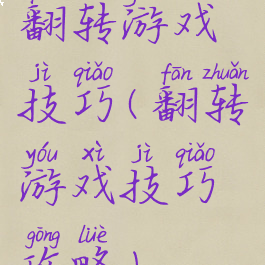 翻转游戏
jì qiǎo fān zhuǎn
技巧(翻转
yóu xì jì qiǎo
游戏技巧
gōng lüè
攻略)